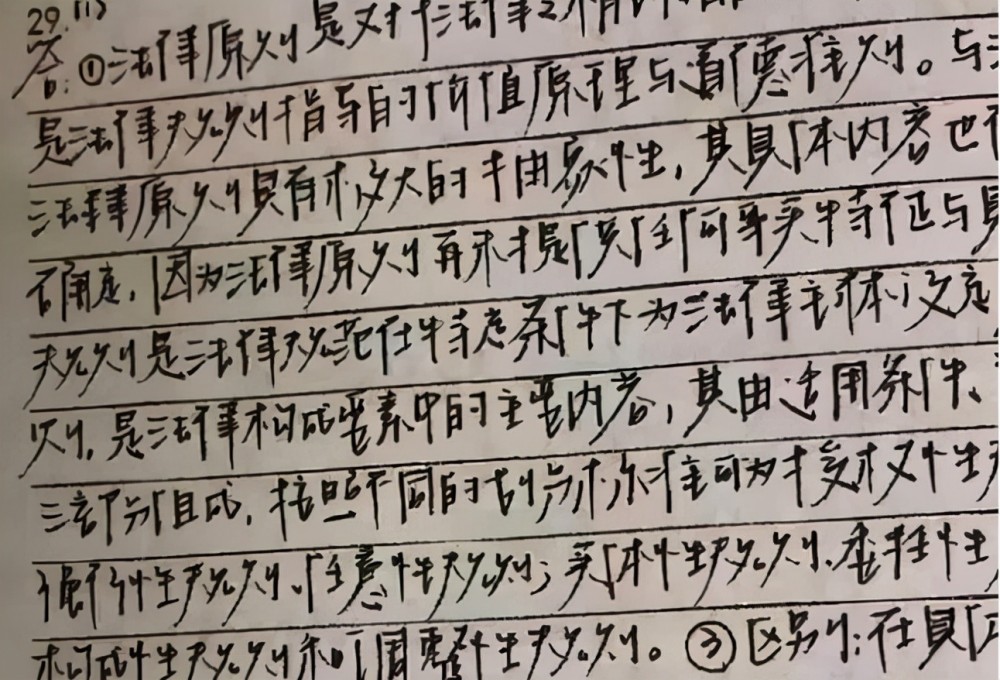 29.(1)
答:①法律原则是对
是法律规则指导的价值原理与道德准则。与
法律原则具有极大的抽象性,其具体内容也
确定,因为法律原则再未提供任何事实特征与
规则是法律规范在特定条件下为法律主体设定
则,是法律构成要素中的主要内容,其由适用条件、
三部分组成,按照不同的划分标准可为授权性
强行性规则、任意性规则;实体性规则、
构成性规则和调整性规则。③区别:在具